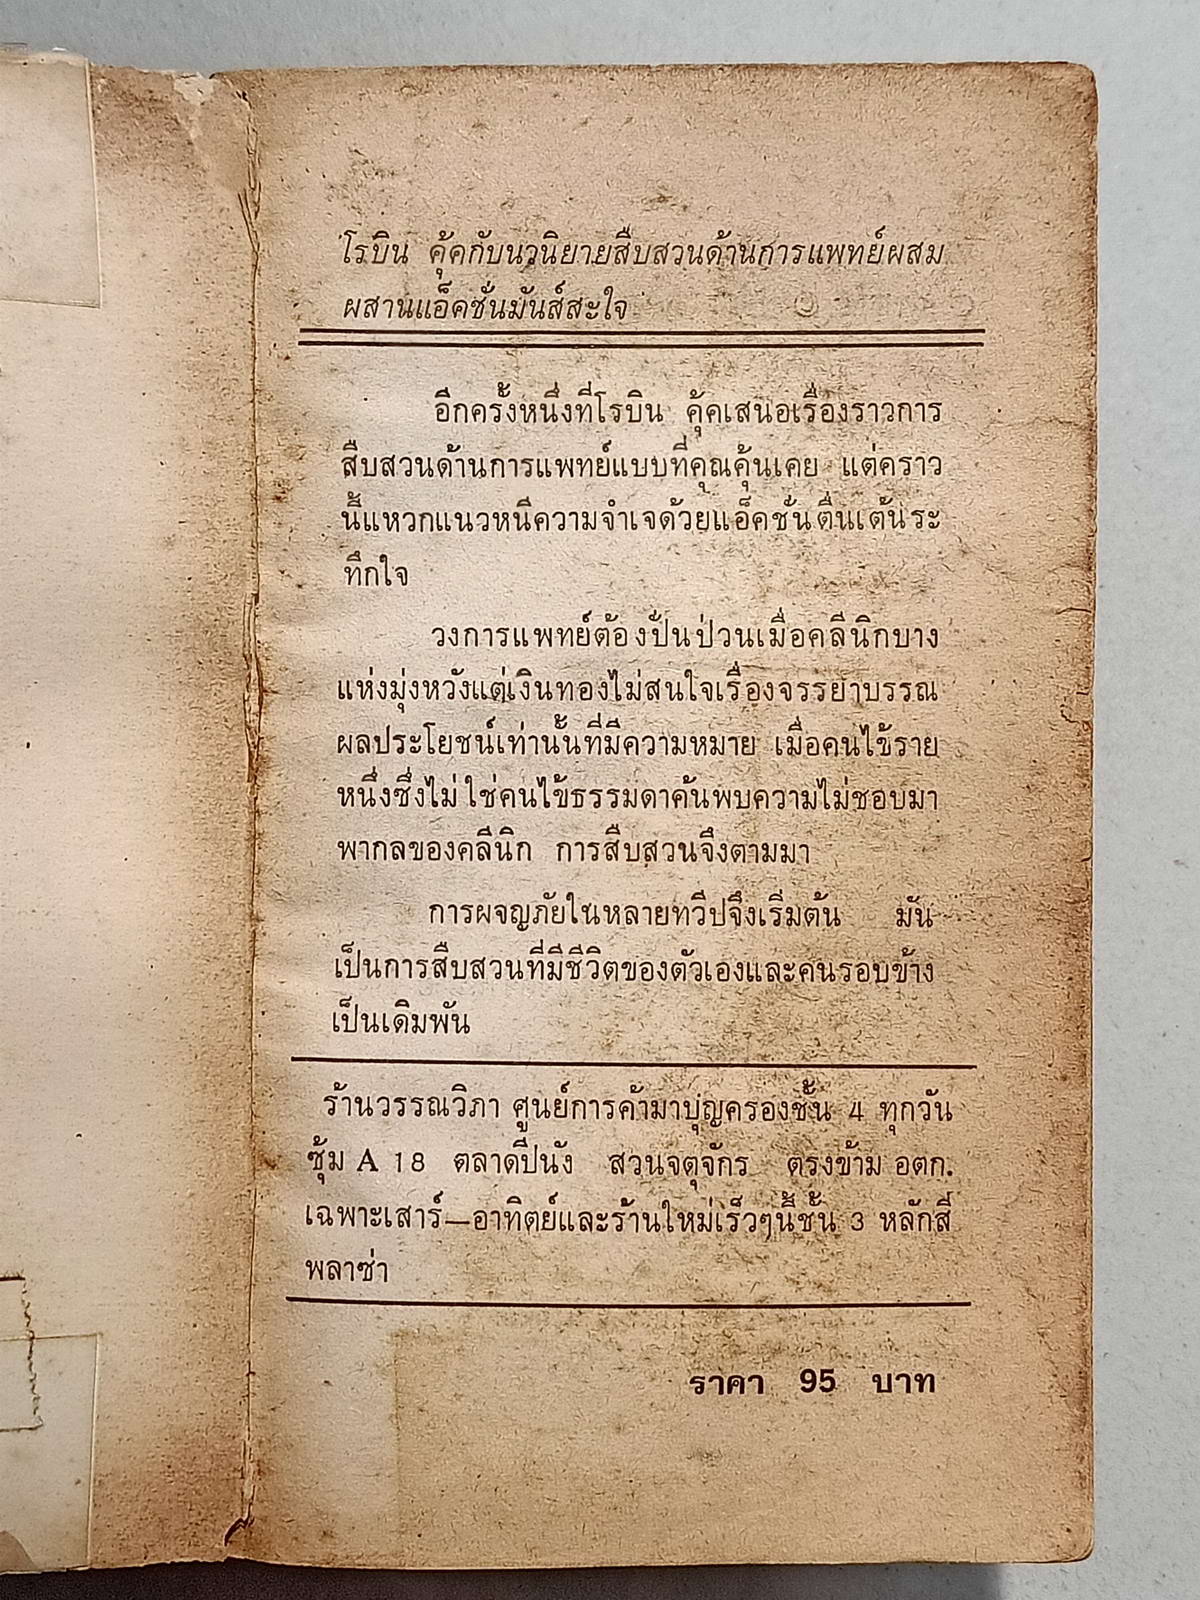 โรบิน คุ้คกับนวนิยายสืบสวนด้านการแพทย์ผสม
ผสานแอ็คชั่นมันส์สะใจ
อีกครั้งหนึ่งที่โรบิน คุ้คเสนอเรื่องราวการ
สืบสวนด้านการแพทย์แบบที่คุณคุ้นเคย แต่คราว
นี้แหวกแนวหนีความจำเจด้วยแอ็คชั่นตื่นเต้นระ
ทึกใจ
วงการแพทย์ต้องปั่นป่วนเมื่อคลีนิกบาง
แห่งมุ่งหวังแต่เงินทองไม่สนใจเรื่องจรรยาบรรณ
ผลประโยชน์เท่านั้นที่มีความหมาย เมื่อคนไข้ราย
หนึ่งซึ่งไม่ใช่คนไข้ธรรมดาค้นพบความไม่ชอบมา
พากลของคลีนิก การสืบสวนจึงตามมา
การผจญภัยในหลายทวีปจึงเริ่มต้น มัน
เป็นการสืบสวนที่มีชีวิตของตัวเองและคนรอบข้าง
เป็นเดิมพัน
ร้านวรรณวิภา ศูนย์การค้ามาบุญครองชั้น 4 ทุกวัน
ซุ้ม A 18 ตลาดปีนัง สวนจตุจักร ตรงข้าม อตก.
เฉพาะเสาร์—อาทิตย์และร้านใหม่เร็วๆนี้ชั้น 3 หลักสี่
พลาซ่า
ราคา 95 บาท